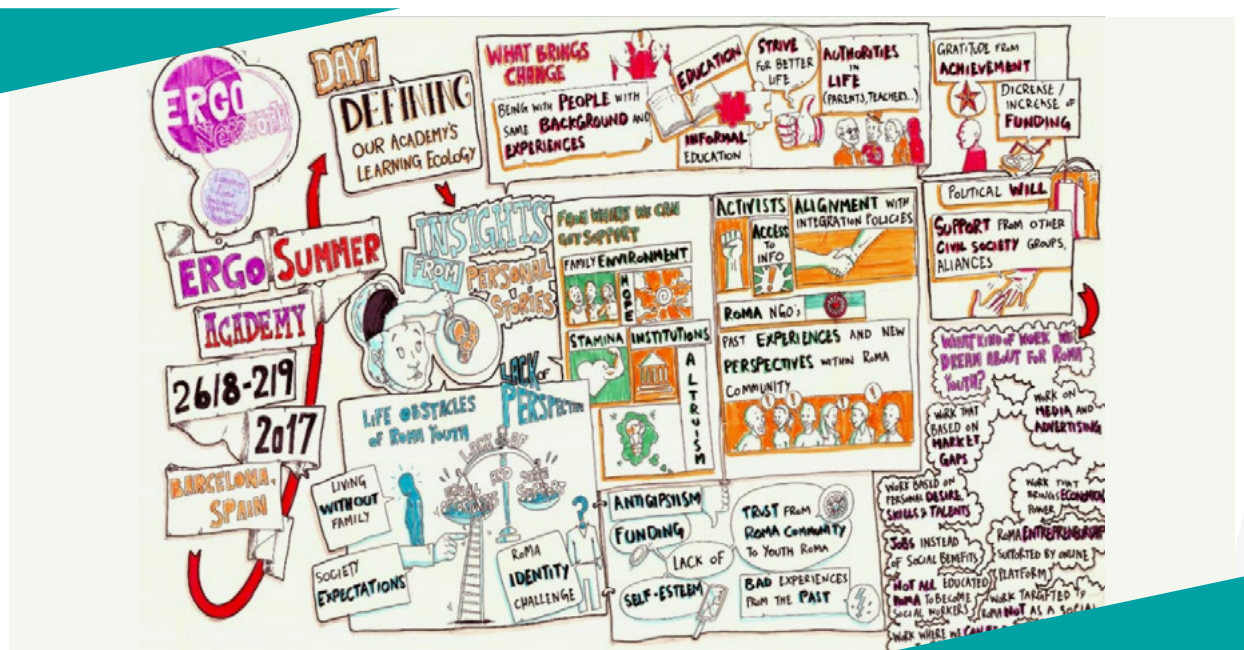 ERGO
Network
ERGO SUMMER
ACADEMY
26/8-2/9
2017
BARCELONA,
SPAIN
DAY 1
DEFINING
OUR ACADEMY'S
LEARNING ECOLOGY
WHAT BRINGS
CHANGE
BEING WITH PEOPLE WITH
SAME BACKGROUND AND
EXPERIENCES
EDUCATION
INFORMAL
EDUCATION
STRIVE
FOR BETTER
LIFE
AUTHORITIES
IN
LIFE
(PARENTS, TEACHERS...)
GRATITUDE FROM
ACHIEVEMENT
DICREASE /
INCREASE OF
FUNDING
POLITICAL WILL
SUPPORT FROM OTHER
CIVIL SOCIETY GROUPS,
ALIANCES
INSIGHTS
FROM PERSONAL
STORIES
FROM WHERE WE CAN
GET SUPPORT
FAMILY ENVIRONMENT
HOPE
STAMINA
INSTITUTIONS
ALTRUISM
ACTIVISTS
ACCESS
TO
INFO
ALIGNMENT WITH
INTEGRATION POLICIES
ROMA NGO's
PAST EXPERIENCES AND NEW
PERSPECTIVES WITHIN ROMA
COMMUNITY
LIFE OBSTACLES
OF ROMA YOUTH
LACK OF
PERSPECTIVE
LACK OF
EQUAL
AND
STATE
SUPPORT
LIVING
WITHOUT
FAMILY
SOCIETY
EXPECTATIONS
ROMA
IDENTITY
CHALLENGE
?
ANTIGIPSYISM
FUNDING
LACK OF
SELF-ESTEEM
TRUST FROM
ROMA COMMUNITY
TO YOUTH ROMA
BAD EXPERIENCES
FROM THE PAST
WHAT KIND OF WORK WE
DREAM ABOUT FOR ROMA
YOUTH?
WORK THAT
BASED ON
MARKET
GAPS
WORK ON
MEDIA AND
ADVERTISING
WORK BASED ON
PERSONAL DESIRE,
SKILLS & TALENTS
WORK THAT
BRINGS ECONOMIC
POWER
JOBS INSTEAD
OF SOCIAL BENEFITS
ROMA ENTREPRENEURSHIP
SUPPORTED BY ONLINE
PLATFORM
NOT ALL EDUCATED
ROMA TO BECOME
SOCIAL WORKERS
WORK TARGETED TO
ROMA NOT AS A SOCIAL
WORK WHERE WE CAN BE